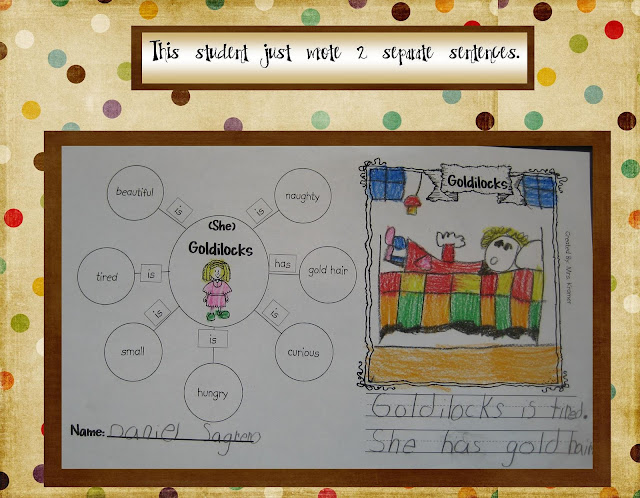 This student just wrote 2 separate sentences.
beautiful
is
naughty
is
(She)
Goldilocks
tired
is
has
gold hair
small
is
is
curious
is
hungry
Name: Daniel
Goldilocks
Created By: Mrs. Kramer
Goldilocks is tired.
She has gold hair